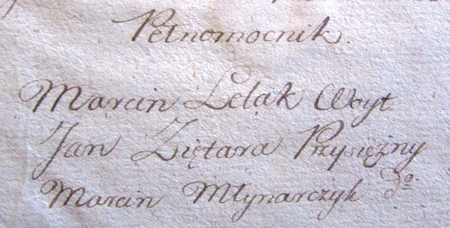 Pełnomocnik.
Marcin Lelak Woyt
Jan Ziętara Przysięzny
Marcin Młynarczyk do.